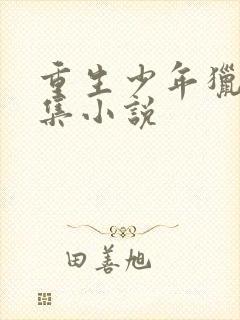 重生少年獵
集小說
田善旭